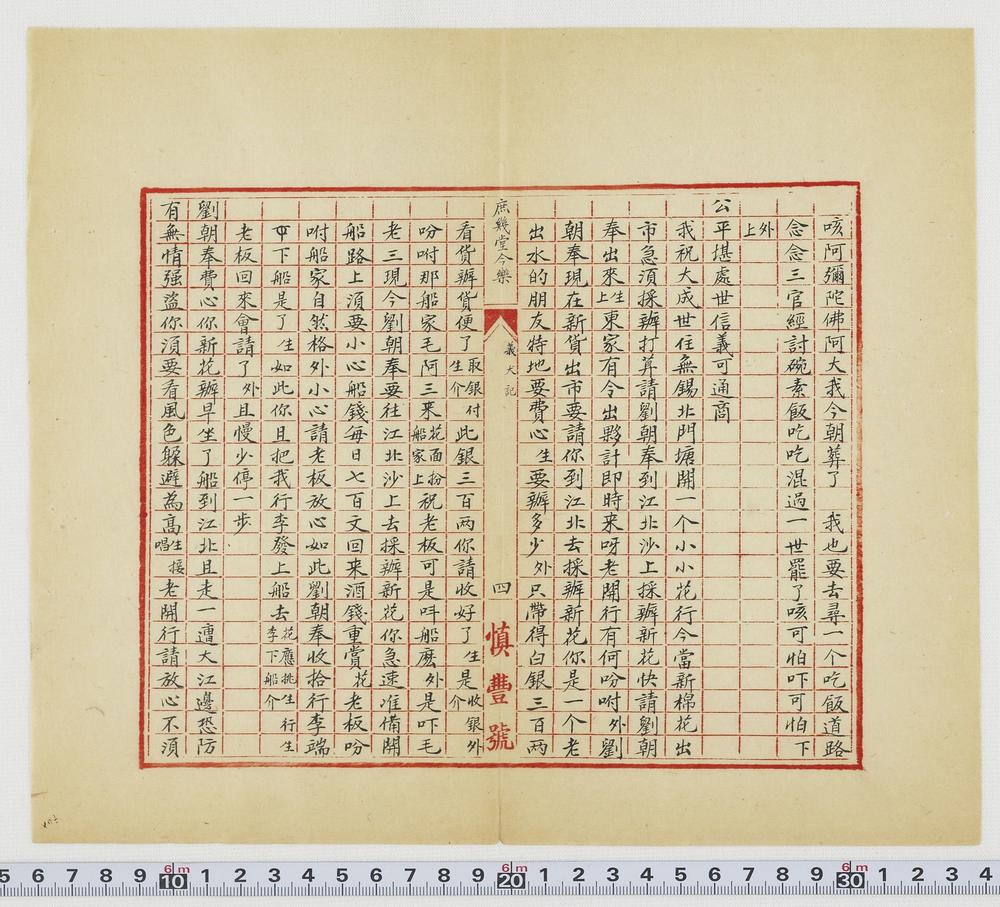 咳阿彌陀佛阿大我今朝葬了　我也要去尋一个吃飯道路
念念三官經討碗素飯吃吃混過一世罷了咳可怕吓可怕下
外上
公平堪處世信義可通商
我祝大成世住無錫北門塘開一个小小花行今當新棉花出
市急須採辦打算請劉朝奉到江北沙上採辦新花快請劉朝
奉出來生上東家有令出夥計即時來呀老開行有何吩咐外劉
朝奉現在新貨出市要請你到江北去採辦新花你是一个老
出水的朋友特地要費心生要辦多少外只帶得白銀三百両
庶幾堂今樂
義犬記
四
慎豐號
看貨辦貨便了取銀付生介此銀三百両你請收好了生是收銀介外
吩咐那船家毛阿三來花面扮船家上祝老板可是呌船麽外是吓毛
老三現今劉朝奉要往江北沙上去採辦新花你急速准備開
船路上須要小心船錢每日七百文回來酒錢重賞花老板吩
咐船家自然格外小心請老板放心如此劉朝奉收拾行李端
下船是了生如此你且把我行李發上船去花應挑生行李下船介生
老板回來會請了外且慢少停一步
劉朝奉費心你新花辦早坐了船到江北且走一遭大江邊恐防
有無情强盗你須要看風色躲避為高生接唱老開行請放心不須